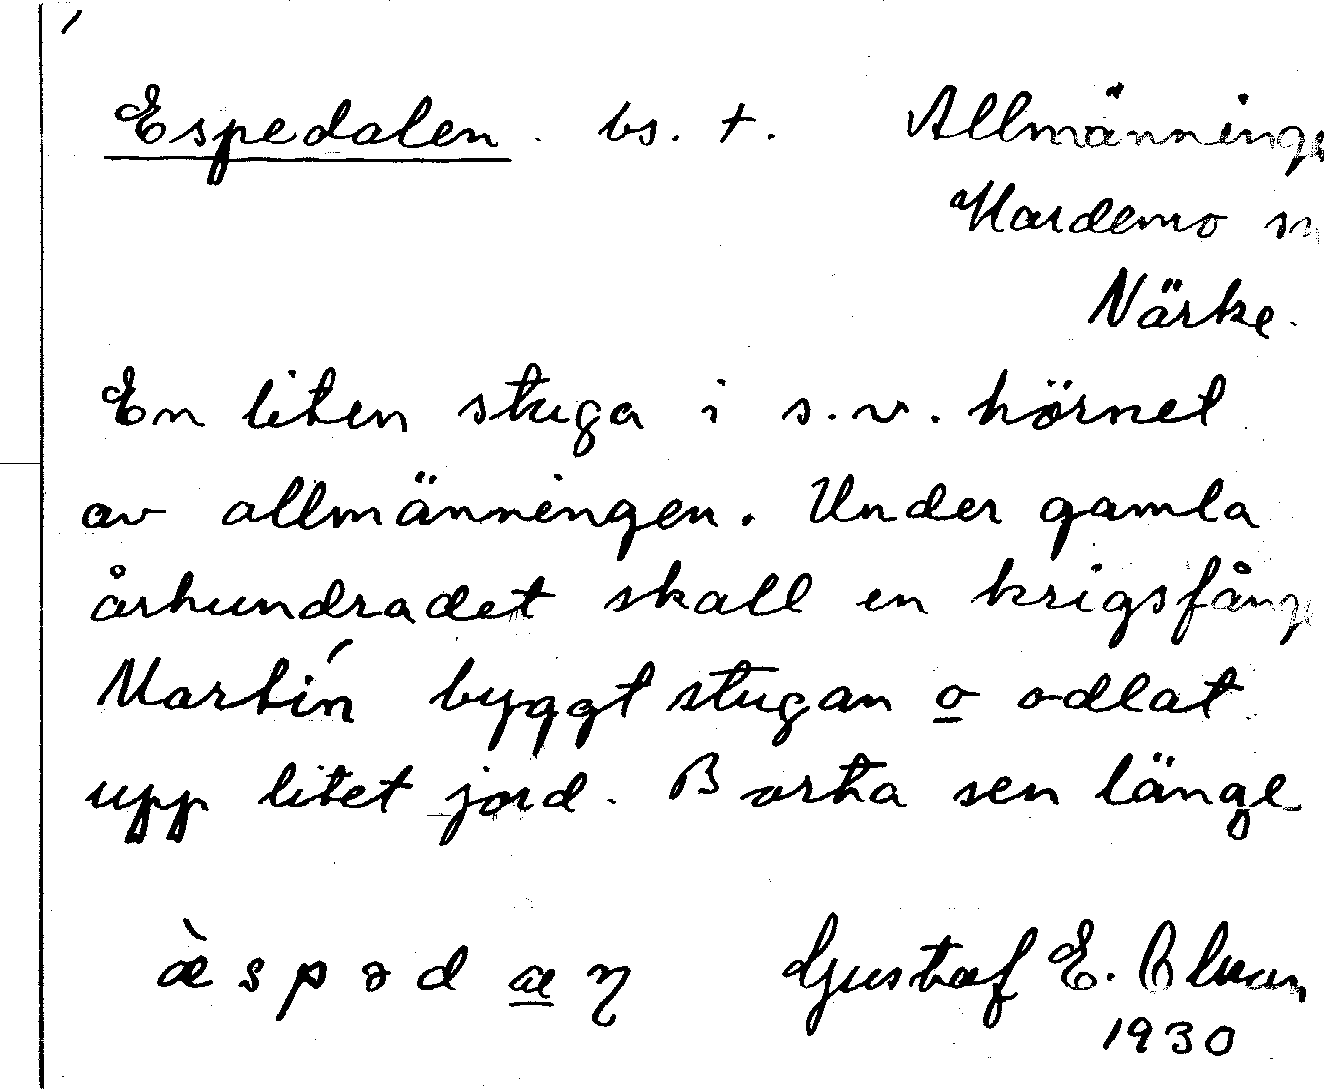 Espedalen. bs. t. Allmänninge
Hardemo sn
Närke.
En liten stuga i s.v. hörnet
av allmänningen. Under gamla
århundradet skall en krigsfånge
Martín byggt stugan o odlat
upp litet jord. Borta sen länge
æ̀ s p ə d æ η Gustaf E.
1930